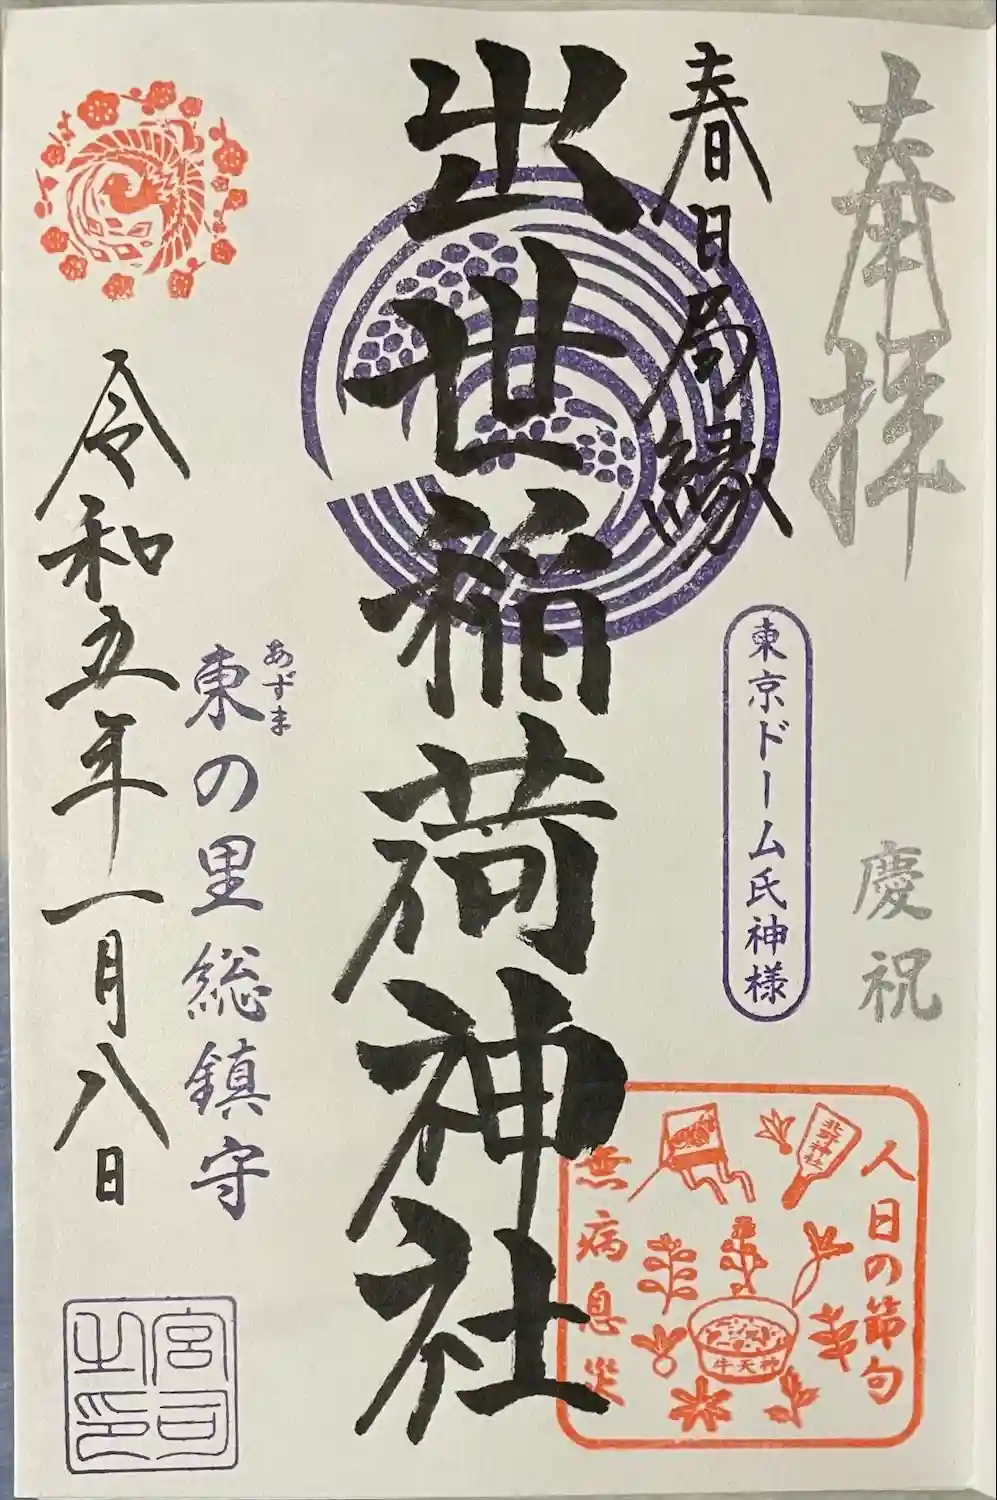 奉拝
慶祝
春日局縁
東京ドーム氏神様
人日の節句
北野神社
牛天神
無病息災
出世稲荷神社
あずま
東の里総鎮守
令和五年一月八日
宮司之印